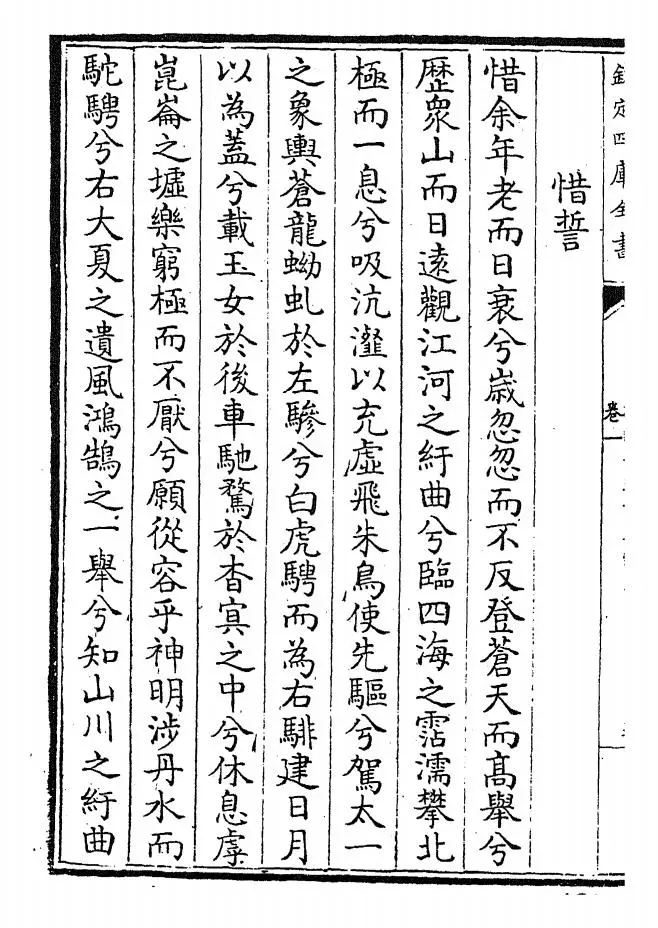 欽定四庫全書
卷一
惜誓
惜余年老而日衰兮歳忽忽而不反登蒼天而髙舉兮
歴衆山而日逺觀江河之紆曲兮臨四海之霑濡攀北
極而一息兮吸沆瀣以充虚飛朱鳥使先驅兮駕太一
之象輿蒼龍蚴虬於左驂兮白虎騁而為右騑建日月
以為蓋兮載玉女於後車馳騖於杳㝠之中兮休息虖
崑崙之墟樂窮極而不厭兮願從容乎神明涉丹水而
駝騁兮右大夏之遺風鴻鵠之一舉兮知山川之紆曲